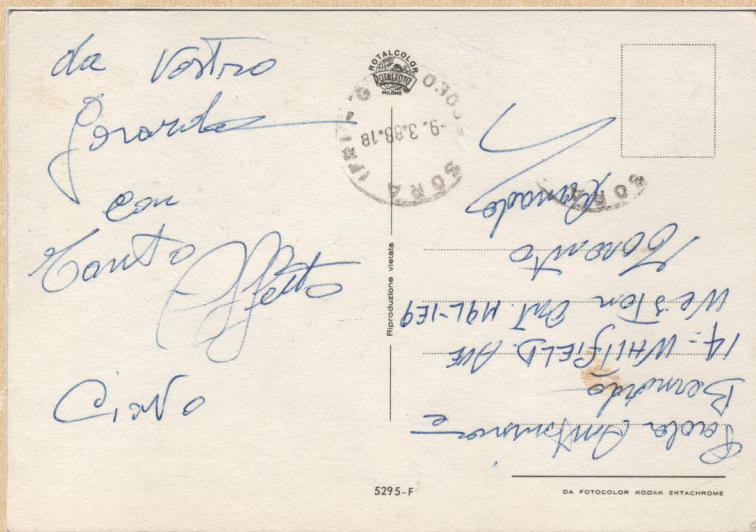 da Vostro
Gerardo
con
Tanto Affetto
Ciao
ROTALCOLOR
ROTALFOTO
MILANO
-9. 3.88.18
SORA (FR)
SORA
Riproduzione vietata
Paola Antonina e
Bernardo
14 - WHITFIELD. AVE
WesTon Ont. M9L-1E9
Toronto
Kanada
5295-F
DA FOTOCOLOR KODAK EKTACHROME